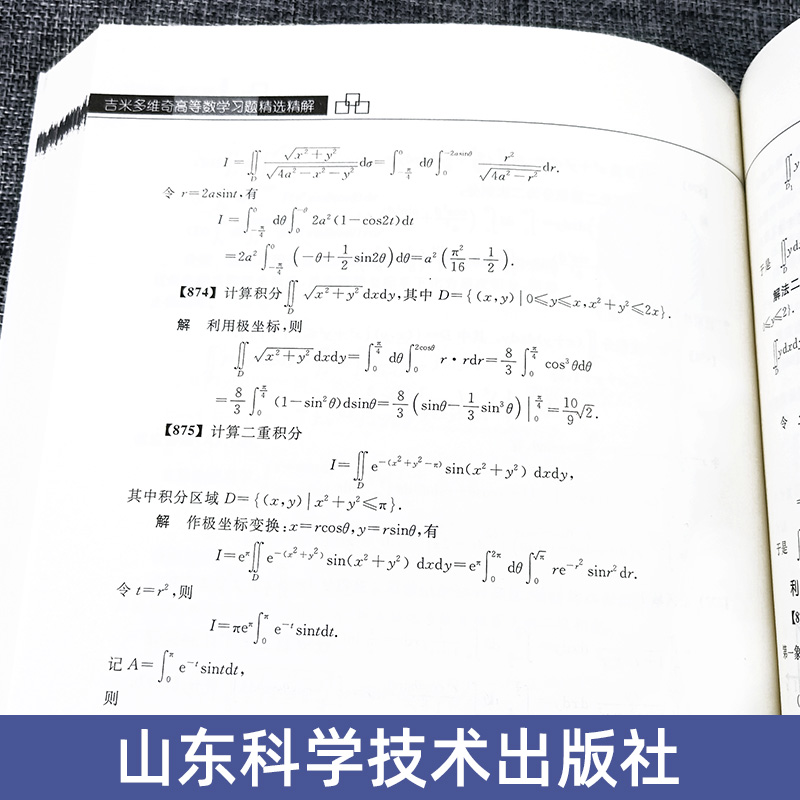 吉米多维奇高等数学习题精选精解
I=∬_D √(x²+y²)/√(4a²-x²-y²) dσ=∫_{-π/4}^0 dθ∫_0^{-2asinθ} r²/√(4a²-r²) dr.
令 r=2asint,有
I=∫_{-π/4}^0 dθ∫_0^{-θ} 2a²(1-cos2t)dt
=2a²∫_{-π/4}^0 (-θ+1/2 sin2θ)dθ=a²(π²/16-1/2).
【874】计算积分∬_D √(x²+y²) dxdy,其中 D={(x,y)|0≤y≤x,x²+y²≤2x}.
解 利用极坐标,则
∬_D √(x²+y²) dxdy=∫_0^{π/4} dθ∫_0^{2cosθ} r·rdr=8/3 ∫_0^{π/4} cos³θdθ
=8/3 ∫_0^{π/4} (1-sin²θ)dsinθ=8/3 (sinθ-1/3 sin³θ)|_0^{π/4}=10/9 √2.
【875】计算二重积分
I=∬_D e^{-(x²+y²-π)} sin(x²+y²) dxdy,
其中积分区域 D={(x,y)|x²+y²≤π}.
解 作极坐标变换:x=rcosθ,y=rsinθ,有
I=e^π∬_D e^{-(x²+y²)} sin(x²+y²) dxdy=e^π∫_0^{2π} dθ∫_0^{√π} re^{-r²} sinr²dr.
令 t=r²,则
I=πe^π∫_0^π e^{-t}sintdt.
记 A=∫_0^π e^{-t}sintdt,
则
∬_{D₁} y
于是 ∬_D yd
解法二
≤y≤2}.
∬_D ydxdy
令
=
于是
利
【8
第一象
山东科学技术出版社